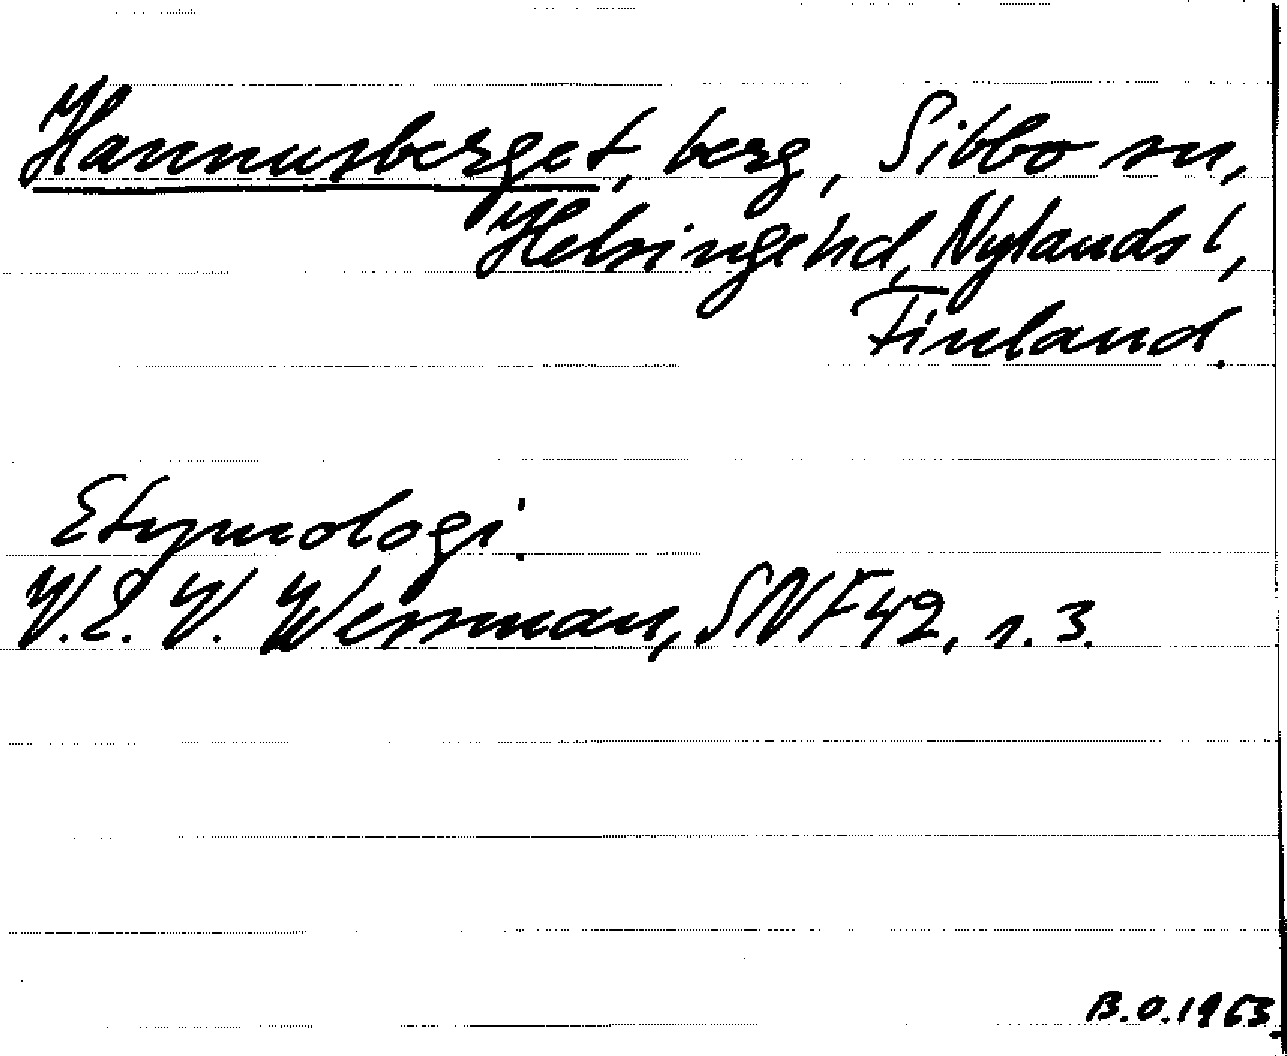 Hannusberget, berg, Sibbo sn,
Helsinge hd, Nylands l,
Finland.
Etymologi.
V. E. V. Wessman, SNF 42, s. 3.
B.O. 1963.